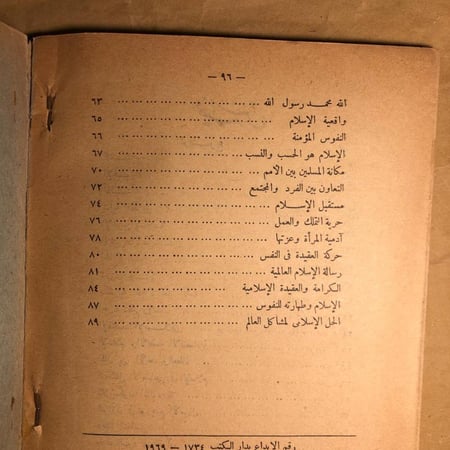 — ٩٦ —
الله محمد رسول الله ... ... ... ... ... ... ... ... ... ... ٦٣
واقعية الإسلام ... ... ... ... ... ... ... ... ... ... ... ٦٥
النفوس المؤمنة ... ... ... ... ... ... ... ... ... ... ... ٦٦
الإسلام هو الحسب والنسب ... ... ... ... ... ... ... ... ... ٦٧
مكانة المسلمين بين الأمم ... ... ... ... ... ... ... ... ... ٧٠
التعاون بين الفرد والمجتمع ... ... ... ... ... ... ... ... ... ٧٢
مستقبل الإسلام ... ... ... ... ... ... ... ... ... ... ... ٧٤
حرية التملك والعمل ... ... ... ... ... ... ... ... ... ... ٧٦
آدمية المرأة وعزتها ... ... ... ... ... ... ... ... ... ... ٧٨
حركة العقيدة فى النفس ... ... ... ... ... ... ... ... ... ... ٨٠
رسالة الإسلام العالمية ... ... ... ... ... ... ... ... ... ... ٨١
الكرامة والعقيدة الإسلامية ... ... ... ... ... ... ... ... ... ٨٤
الإسلام وطهارته للنفوس ... ... ... ... ... ... ... ... ... ... ٨٧
الحل الإسلامى لمشاكل العالم ... ... ... ... ... ... ... ... ... ٨٩
رقم الإيداع بدار الكتب ١٧٣٤ — ١٩٦٩